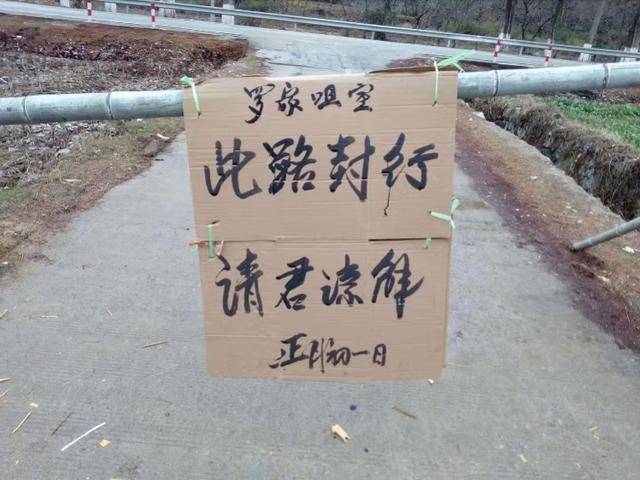 罗家咀宣
此路封行
请君谅解
正月初一日